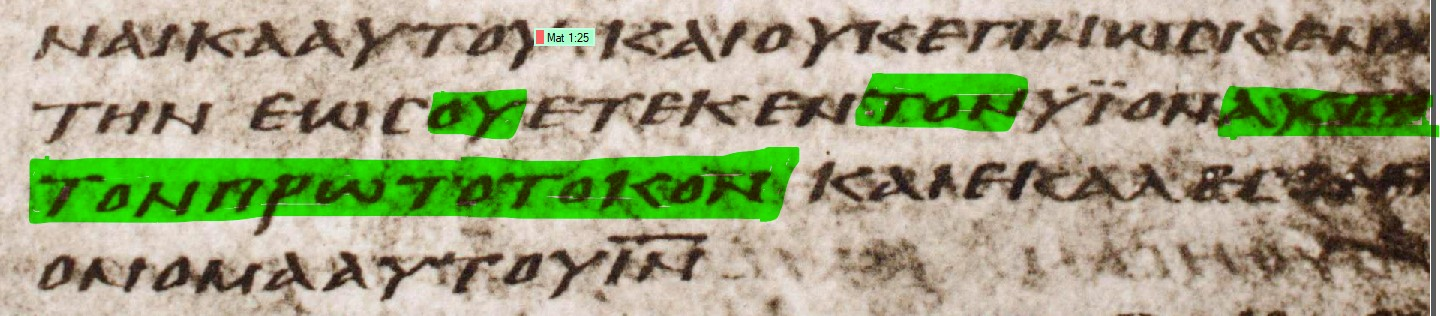 ΝΑΙΚΑΑΥΤΟΥ ΚΑΙΟΥΚΕΓΙΝΩϹΚΕΝΑΥ
Mat 1:25
ΤΗΝ ΕΩϹΟΥΕΤΕΚΕΝΤΟΝΥΪΟΝΑΥΤΗϹ
ΤΟΝΠΡΩΤΟΤΟΚΟΝ ΚΑΙΕΚΑΛΕϹΕΝΤΟ
ΟΝΟΜΑΑΥΤΟΥΙΝ